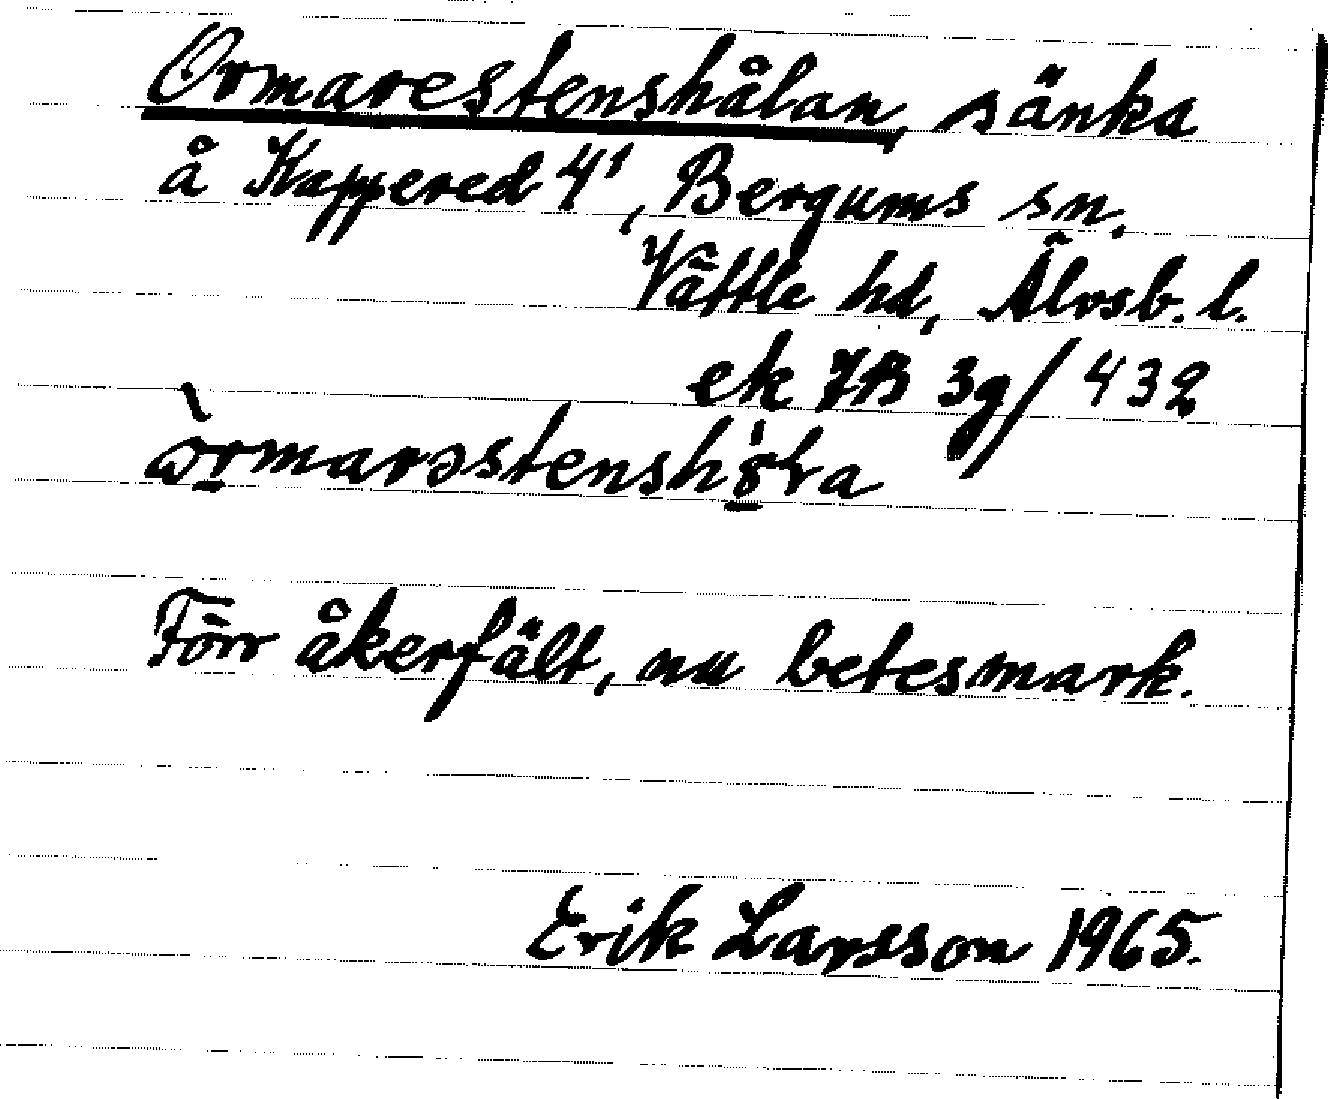 Ormarestenshålan, sänka
å Kappered 4¹, Bergums sn.
Vättle hd, Älvsb. l.
ek 7B 3g/432
ꞷ̀rmarɘstenshɞ̍ɽa
Förr åkerfält, nu betesmark.
Erik Larsson 1965.